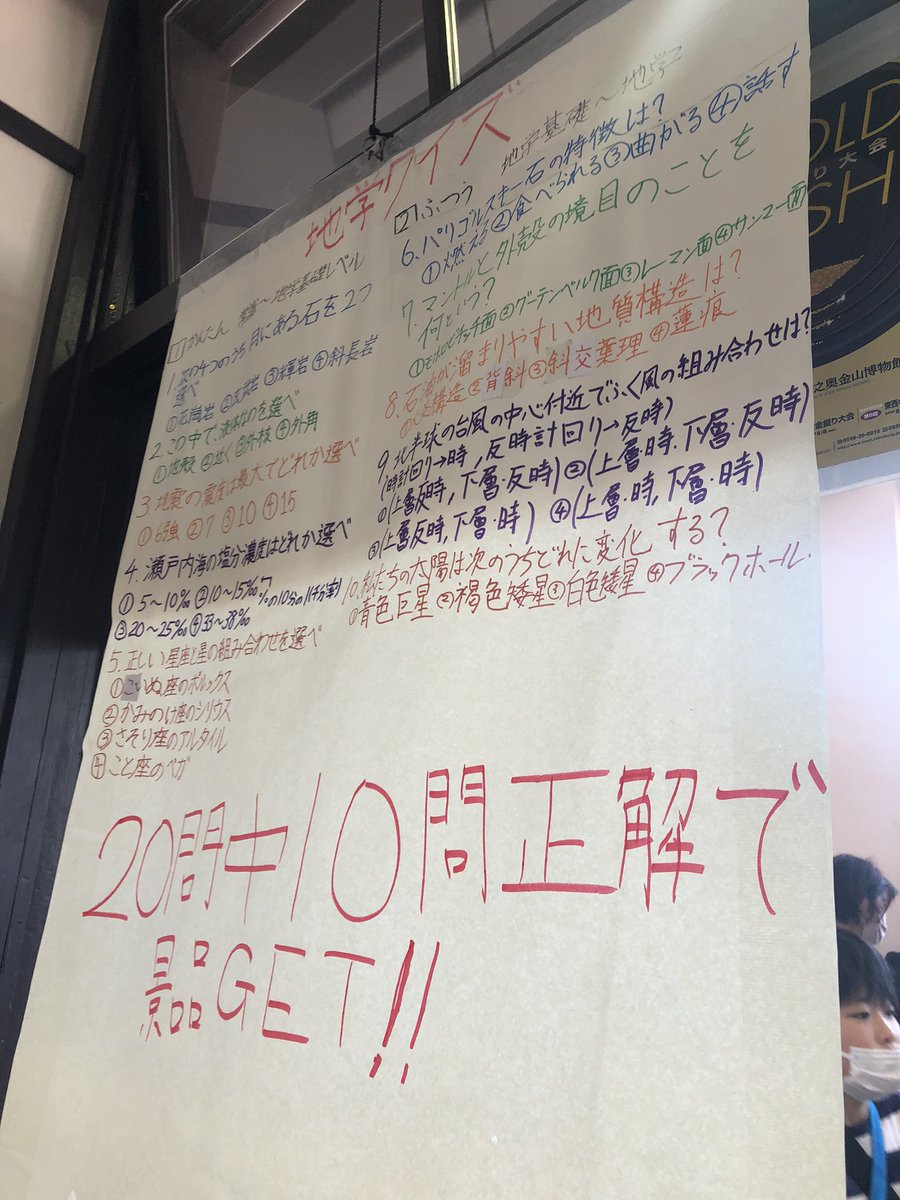 地学クイズ
1 かんたん 常識〜地学基礎レベル
1.次の4つのうち月にある石を2つ
選べ
①花崗岩 ②玄武岩 ③輝岩 ④斜長岩
2.この中で液体なのを選べ
①地殻 ②近く ③外核 ④外角
3.地震の震度は最大でどれか選べ
①6強 ②7 ③10 ④15
4.瀬戸内海の塩分濃度はどれか選べ
①5〜10‰ ②10〜15‰
③20〜25‰ ④33〜38‰
%の10分の1(千分率)
5.正しい星座と星の組み合わせを選べ
①こいぬ座のポルックス
②かみのけ座のシリウス
③さそり座のアルタイル
④こと座のベガ
2 ふつう 地学基礎〜地学
6.パリゴルスキー石の特徴は?
①燃える ②食べられる ③曲がる ④話す
7.マントルと外殻の境目のことを
何という?
①モホロビチッチ面 ②グーテンベルク面 ③レーマン面 ④サンマー面
8.石油が留まりやすい地質構造は?
②背斜 ③斜交葉理 ④蓮痕
9.北半球の台風の中心付近でふく風の組み合わせは?
(時計回り→時, 反時計回り→反時)
①(上層反時,下層・反時) ②(上層・時,下層・反時)
③(上層反時,下層・時) ④(上層・時,下層・時)
10.私たちの太陽は次のうちどれに変化する?
①青色巨星 ②褐色矮星 ③白色矮星 ④ブラックホール
20問中10問正解で
景品GET!!
OLD
り大会
SH
之奥金山博物館